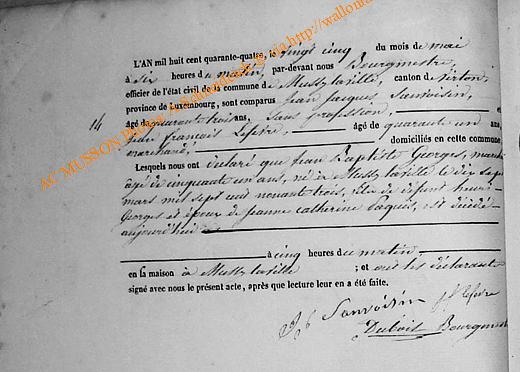 L'AN mil huit cent quarante-quatre, le vingt cinq du mois de mai
à six heures du matin, par-devant nous Bourgmestre,
officier de l'état civil de la commune de Mussy la ville, canton de virton,
province de Luxembourg, sont comparus jean jacques Sauvoisin,
14 âgé de quarante trois ans, sans profession, et
jean françois Lefèvre, âgé de quarante un ans,
marchand, domiciliés en cette commune
Lesquels nous ont déclaré que jean Baptiste Georges,
âgé de cinquante un ans, né à Mussy la ville le dix sept
mars mil sept cent nonante trois, fils de défunt henri
Georges et époux de jeanne catherine Paquis, est décédé
aujourd'hui
à cinq heures du matin
en sa maison à Mussy la ville ; et ont les déclarants
signé avec nous le présent acte, après que lecture leur en a été faite.
Sauvoisin jf lefèvre
Dubois Bourgmest
AC MUSSON via http://wallonia